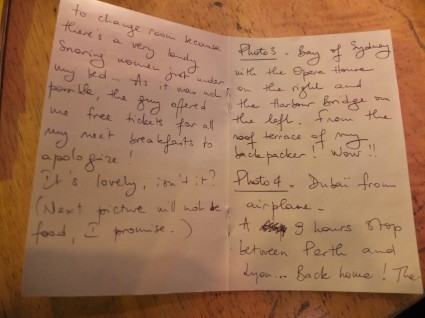 to change room because
there's a very loudy
snoring women just under
my bed... As it was not
possible, the guy offered
me free tickets for all
my next breakfasts to
apologize!
It's lovely, isn't it?
(Next picture will not be
food, I promise.)
Photo 3. Bay of Sydney
with the Opera House
on the right and
the Harbour Bridge on
the left. From the
roof terrace of my
backpacker! Wow!!
Photo 4. Dubaï from
airplane.
A 9 hours stop
between Perth and
Lyon... Back home! The